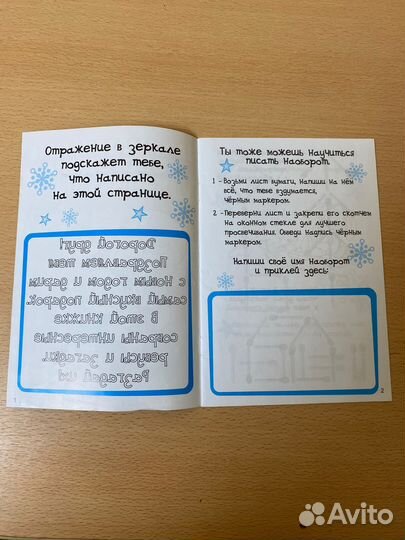 Отражение в зеркале
подскажет тебе,
что написано
на этой странице.
Дорогой друг!
Поздравляем тебя
с Новым годом и дарим
самый вкусный подарок.
В этой книжке
собраны интересные
ребусы и загадки.
Разгадай их!
1
Ты тоже можешь научиться
писать наоборот.
1 - Возьми лист бумаги, напиши на нём
всё, что тебе вздумается,
чёрным маркером.
2 - Переверни лист и закрепи его скотчем
на оконном стекле для лучшего
просвечивания. Обведи надпись чёрным
маркером.
Напиши своё имя наоборот
и приклей здесь:
2
Avito